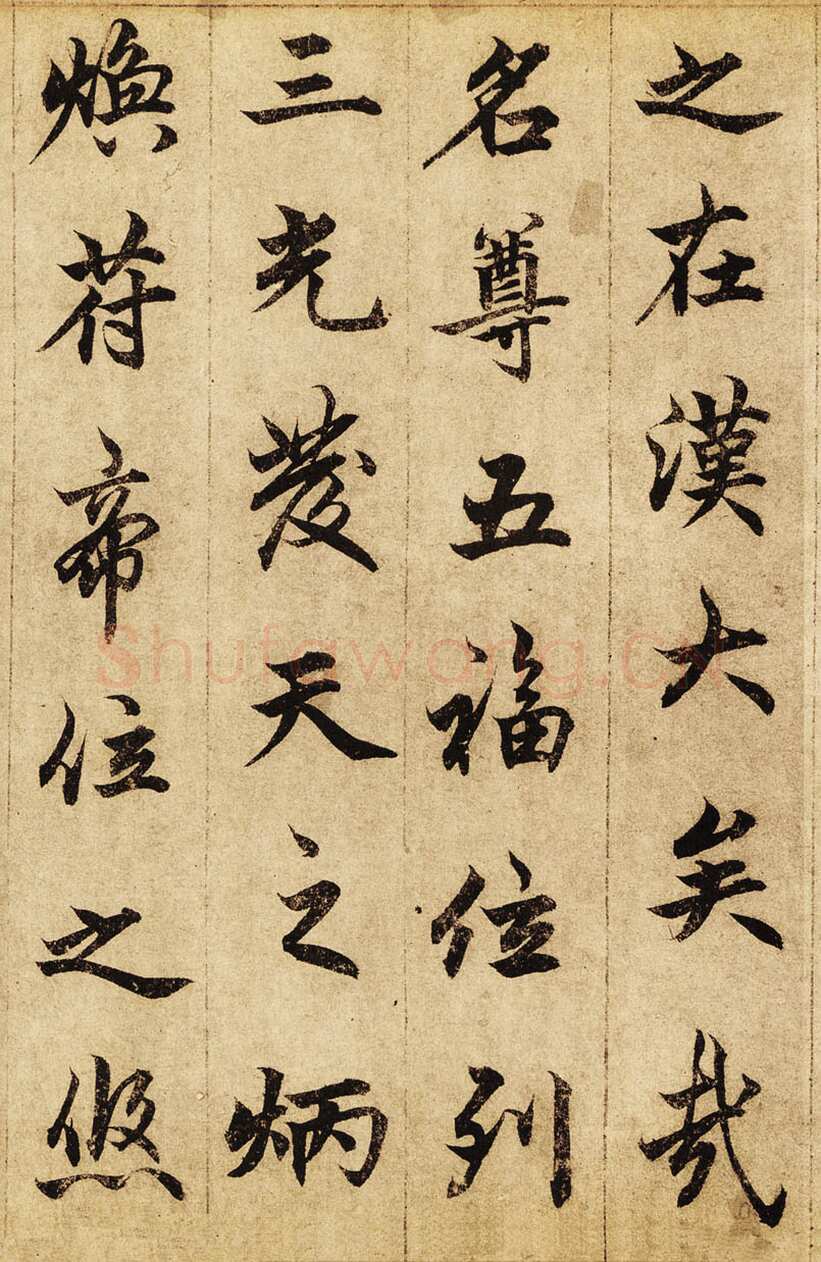 之在漢大矣哉
名尊五福位列
三光發天之炳
煥符帝位之悠
Shufawang.CN